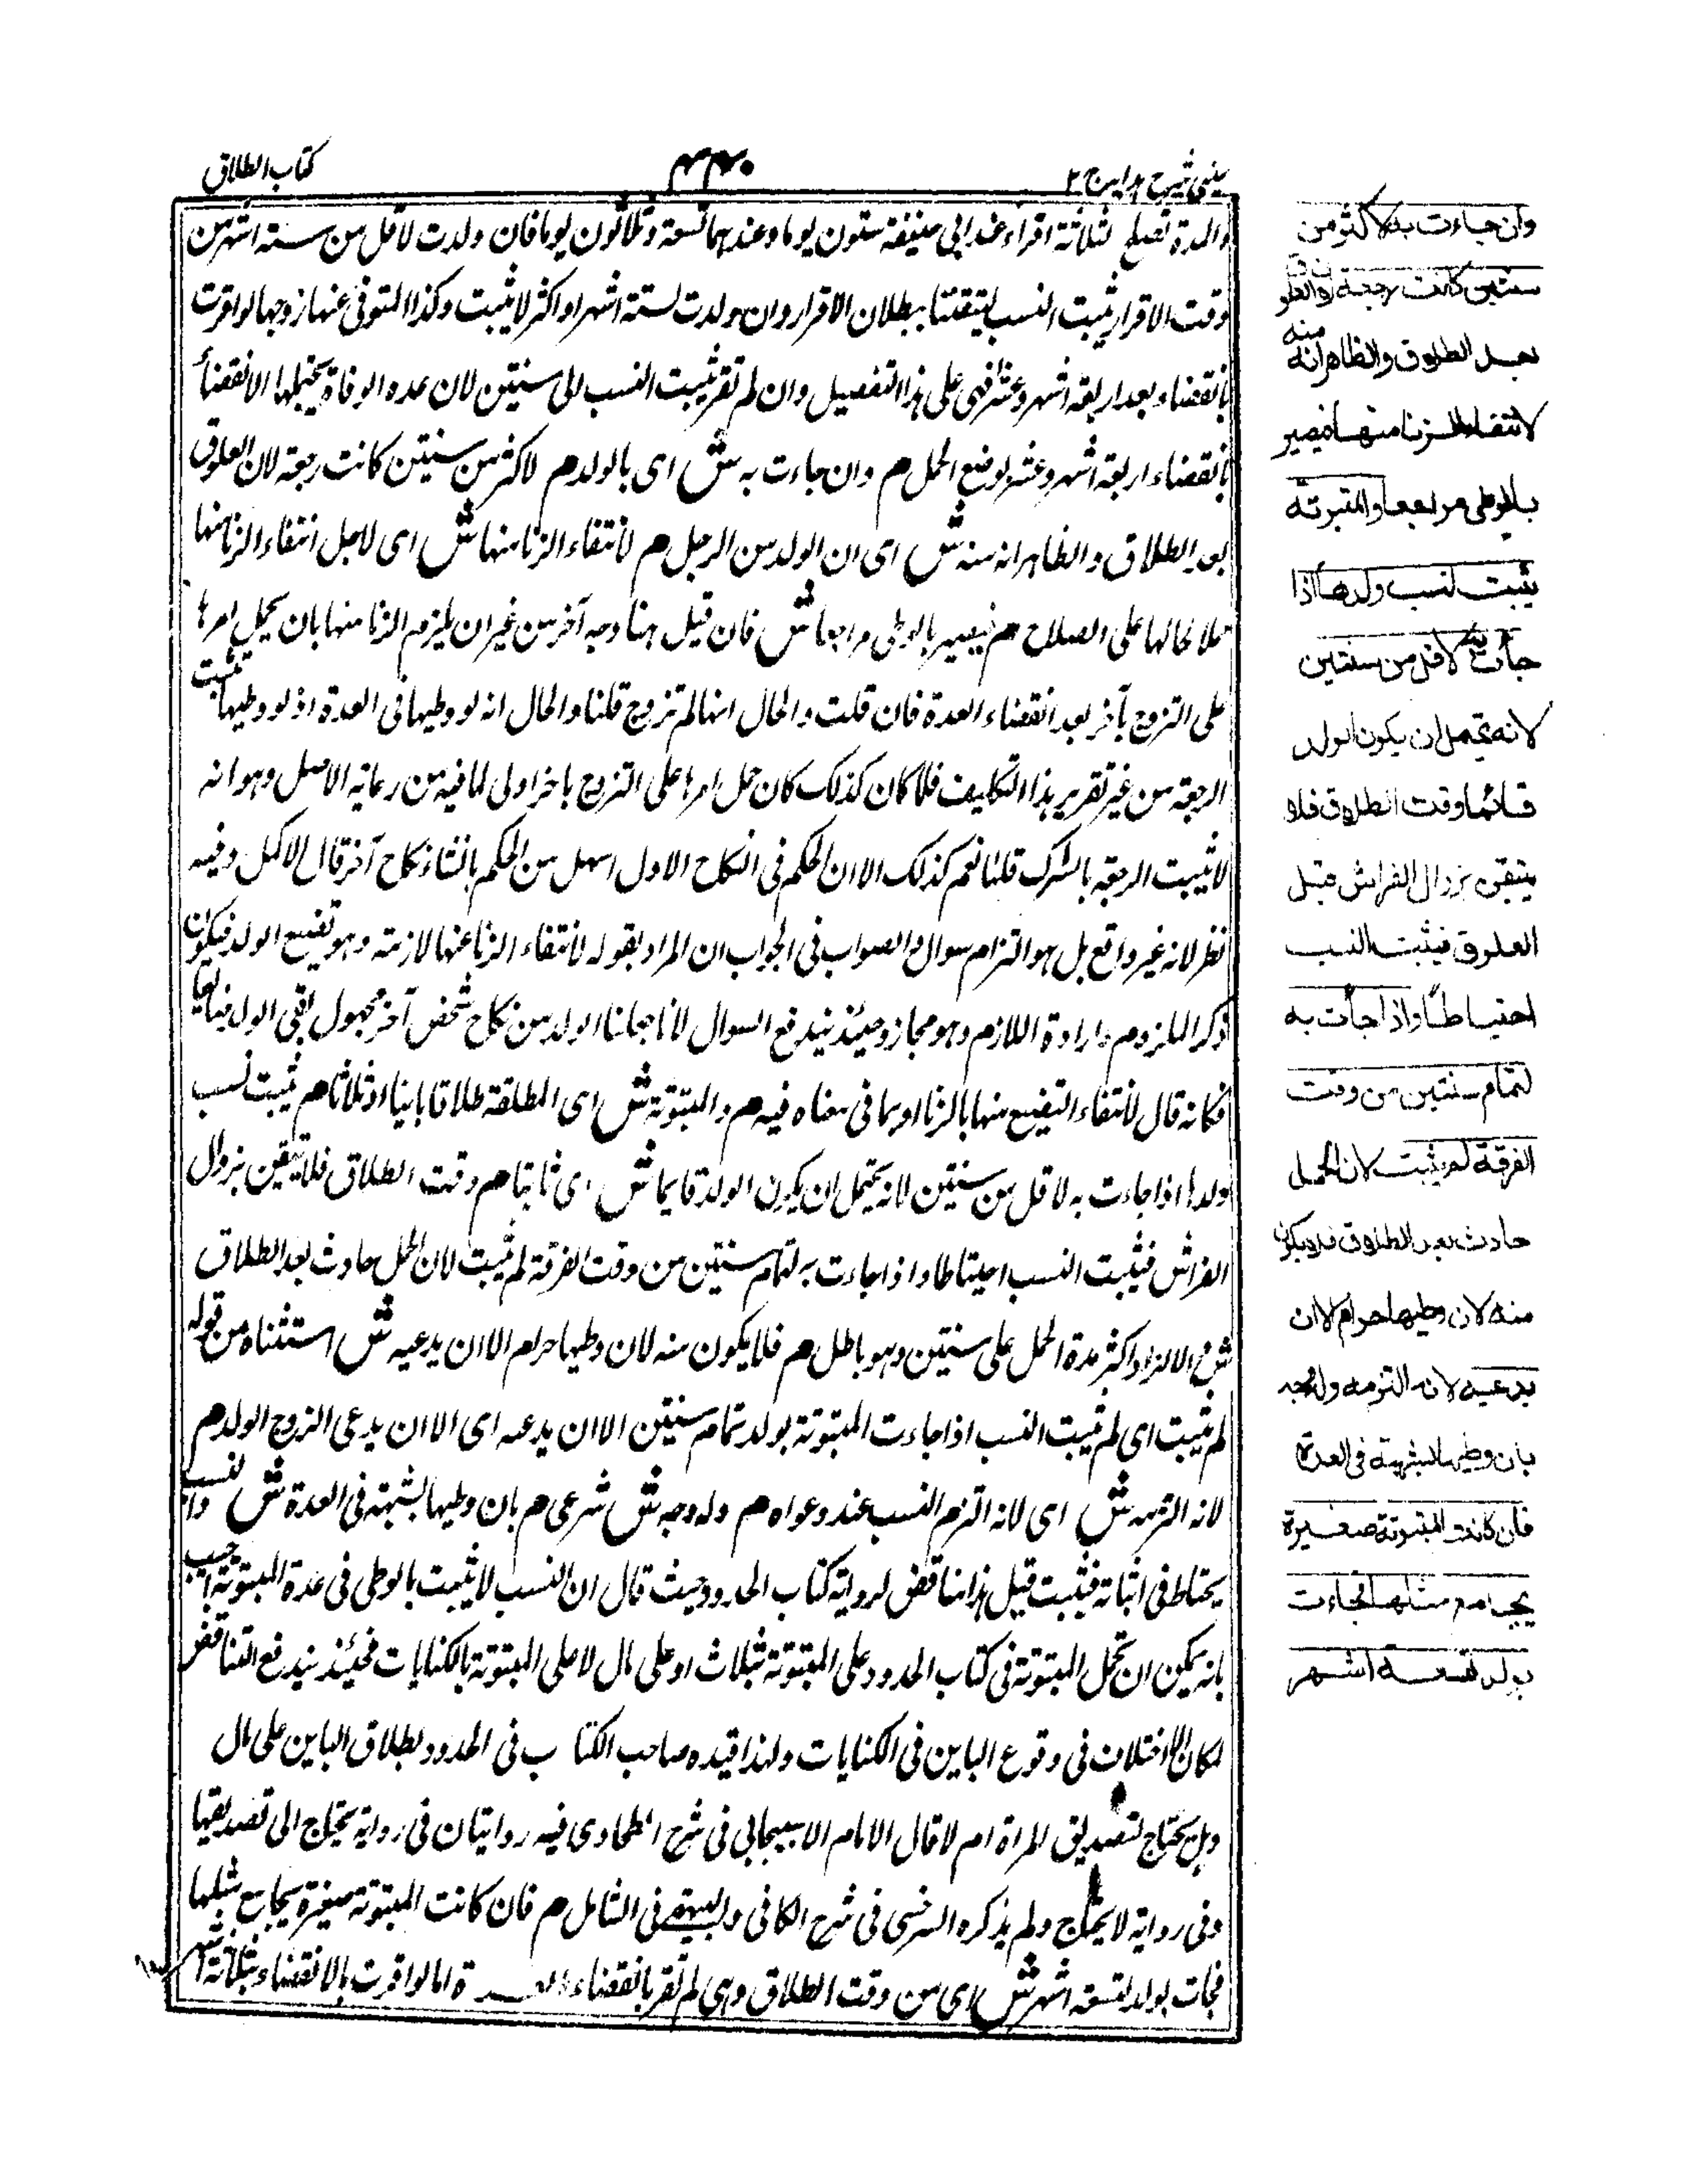 عينى شرح هدايه ج ٢
٤٤٠
كتاب الطلاق
والمدة تصلح لثلاثة اقراء عند ابى حنيفة ستون يوما وعندهما تسعة وثلاثون يوما فان ولدت لاقل من ستة اشهر من
وقت الاقرار يثبت النسب لتيقننا ببطلان الاقرار وان ولدت لستة اشهر او اكثر لا يثبت وكذا المتوفى عنها زوجها لو اقرت
بانقضاء بعد اربعة اشهر وعشر فهى على هذا التفصيل وان لم تقر يثبت النسب الى سنتين لان عدة الوفاة يحتملها الانقضاء
بانقضاء اربعة اشهر وعشر لوضع الحمل م وان جاءت به ش اى بالولد م لاكثر من سنتين كانت رجعة لان العلوق
بعد الطلاق والظاهر انه منه ش اى ان الولد من الرجل م لانتفاء الزنا منها ش اى لاجل انتفاء الزنا منها
حملا لحالها على الصلاح م فيصير بالوطى مراجعا ش فان قيل هنا وجه آخر من غير ان يلزم الزنا منها بان يحمل امرها
على التزوج بآخر بعد انقضاء العدة فان قلت والحال انها لم تزوج قلنا والحال انه لو وطيها فى العدة اذ لو وطيها تثبت
الرجعة من غير تقرير هذا التكليف فلما كان كذلك كان حمل امرها على التزوج باخر اولى لما فيه من رعاية الاصل وهو انه
لا يثبت الرجعة بالشك قلنا نعم كذلك الا ان الحكم فى النكاح الاول اسهل من الحكم بانشاء نكاح آخر قال الاكمل وفيه
نظر لانه غير واقع بل هو التزام سوال والصواب فى الجواب ان المراد بقوله لانتفاء الزنا عنها لازمته وهو تضييع الولد فيكون
ذكر الملزوم وارادة اللازم وهو مجاز وحينئذ يندفع السوال لانا جعلنا الولد من نكاح شخص آخر مجهول بقى الولد ضايعا
فكانه قال لانتفاء التضييع منها بالزنا او بما فى معناه فيه م والمبتوتة ش اى المطلقة طلاقا باينا او ثلاثا م يثبت نسب
ولدها اذا جاءت به لاقل من سنتين لانه يحتمل ان يكون الولد قايما ش اى ثابتا م وقت الطلاق فلا يتيقن بزوال
الفراش فيثبت النسب احتياطا واذا جاءت به لتمام سنتين من وقت الفرقة لم يثبت لان الحمل حادث بعد الطلاق
ش والا لزاد اكثر مدة الحمل على سنتين وهو باطل م فلا يكون منه لان وطيها حرام الا ان يدعيه ش استثناه من قوله
لم يثبت اى لم يثبت النسب اذا جاءت المبتوتة بولد تمام سنتين الا ان يدعيه اى الا ان يدعى الزوج الولد م
لانه التزمه ش اى لانه التزم النسب عند دعواه م وله وجه ش شرعى م بان وطيها بشبهة فى العدة ش والنسب
يحتاط فى اثباته فيثبت قيل هذا مناقض لرواية كتاب الحدود حيث قال ان النسب لا يثبت بالوطى فى عدة المبتوتة اجيب
بانه يمكن ان تحمل المبتوتة فى كتاب الحدود على المبتوتة بثلاث او على مال لا على المبتوتة بالكنايات فحينئذ يندفع التناقض
لمكان الاختلاف فى وقوع الباين فى الكنايات ولهذا قيده صاحب الكتاب فى الحدود بطلاق الباين على مال
وهل يحتاج لتصديق المراة ام لا قال الامام الاسبيجابى فى شرح الطحاوى فيه روايتان فى رواية يحتاج الى تصديقها
وفى رواية لا يحتاج ولم يذكره السرخسى فى شرح الكافى والبيهقى فى الشامل م فان كانت المبتوتة صغيرة يجامع مثلها
فجات بولد لتسعة اشهر ش اى من وقت الطلاق وهى لم تقر بانقضاء العدة اما لو اقرت بالانقضاء بثلاثة اشهر
وان جاءت به لاكثر من
سنتين كانت رجعة لان العلوق
بعد الطلاق والظاهر انه منه
لانتفاء الزنا منها فيصير
بالوطى مراجعا والمبتوتة
يثبت نسب ولدها اذا
جاءت به لاقل من سنتين
لانه يحتمل ان يكون الولد
قائما وقت الطلاق فلا
يتيقن بزوال الفراش قبل
العلوق فيثبت النسب
احتياطا واذا جاءت به
لتمام سنتين من وقت
الفرقة لم يثبت لان الحمل
حادث بعد الطلاق فلا يكون
منه لان وطيها حرام الا ان
يدعيه لانه التزمه وله وجه
بان وطيها بشبهة فى العدة
فان كانت المبتوتة صغيرة
يجامع مثلها فجاءت
بولد لتسعة اشهر